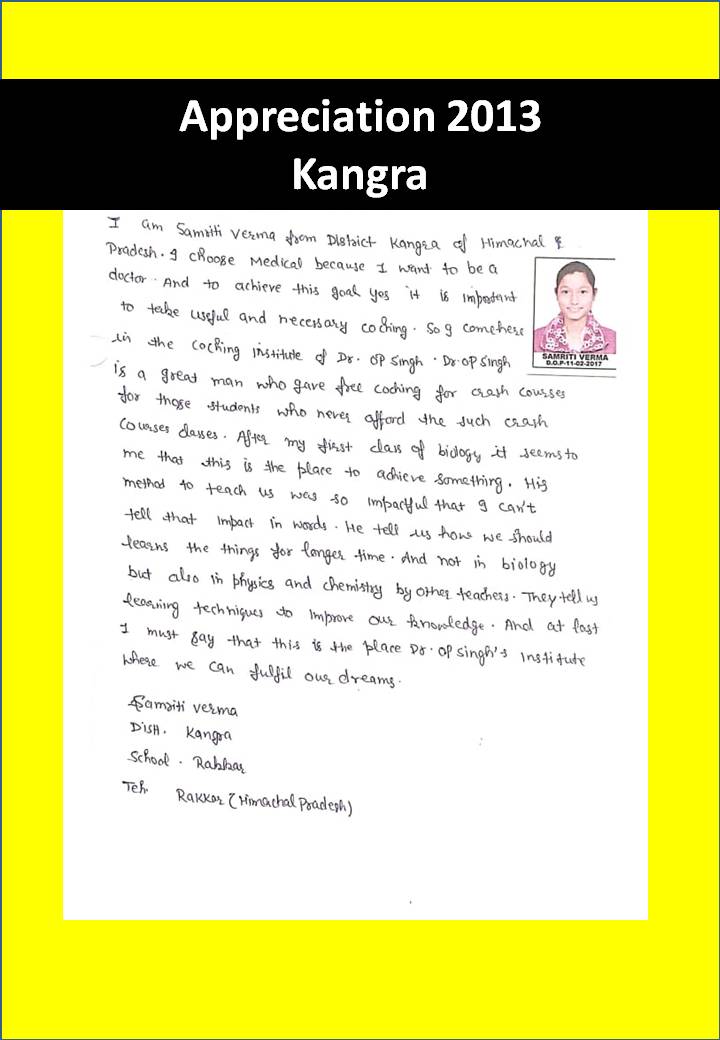 Appreciation 2013
Kangra
I am Samriti Verma from District Kangra of Himachal
Pradesh. I choose Medical because I want to be a
doctor. And to achieve this goal yes it is important
to take useful and necessary coching. So I come here
in the coching institute of Dr. OP Singh. Dr. OP Singh
SAMRITI VERMA
D.O.P-11-02-2017
is a great man who gave free coching for crash courses
for those students who never afford the such crash
courses classes. After my first class of biology it seems to
me that this is the place to achieve something. His
method to teach us was so impactful that I can't
tell that impact in words. He tell us how we should
learns the things for longer time. And not in biology
but also in physics and chemistry by other teachers. They tell us
learning techniques to improve our knowledge. And at last
I must say that this is the place Dr. OP Singh's institute
where we can fulfil our dreams.
Samriti Verma
Distt. Kangra
School. Rakkar
Teh. Rakkar (Himachal Pradesh)